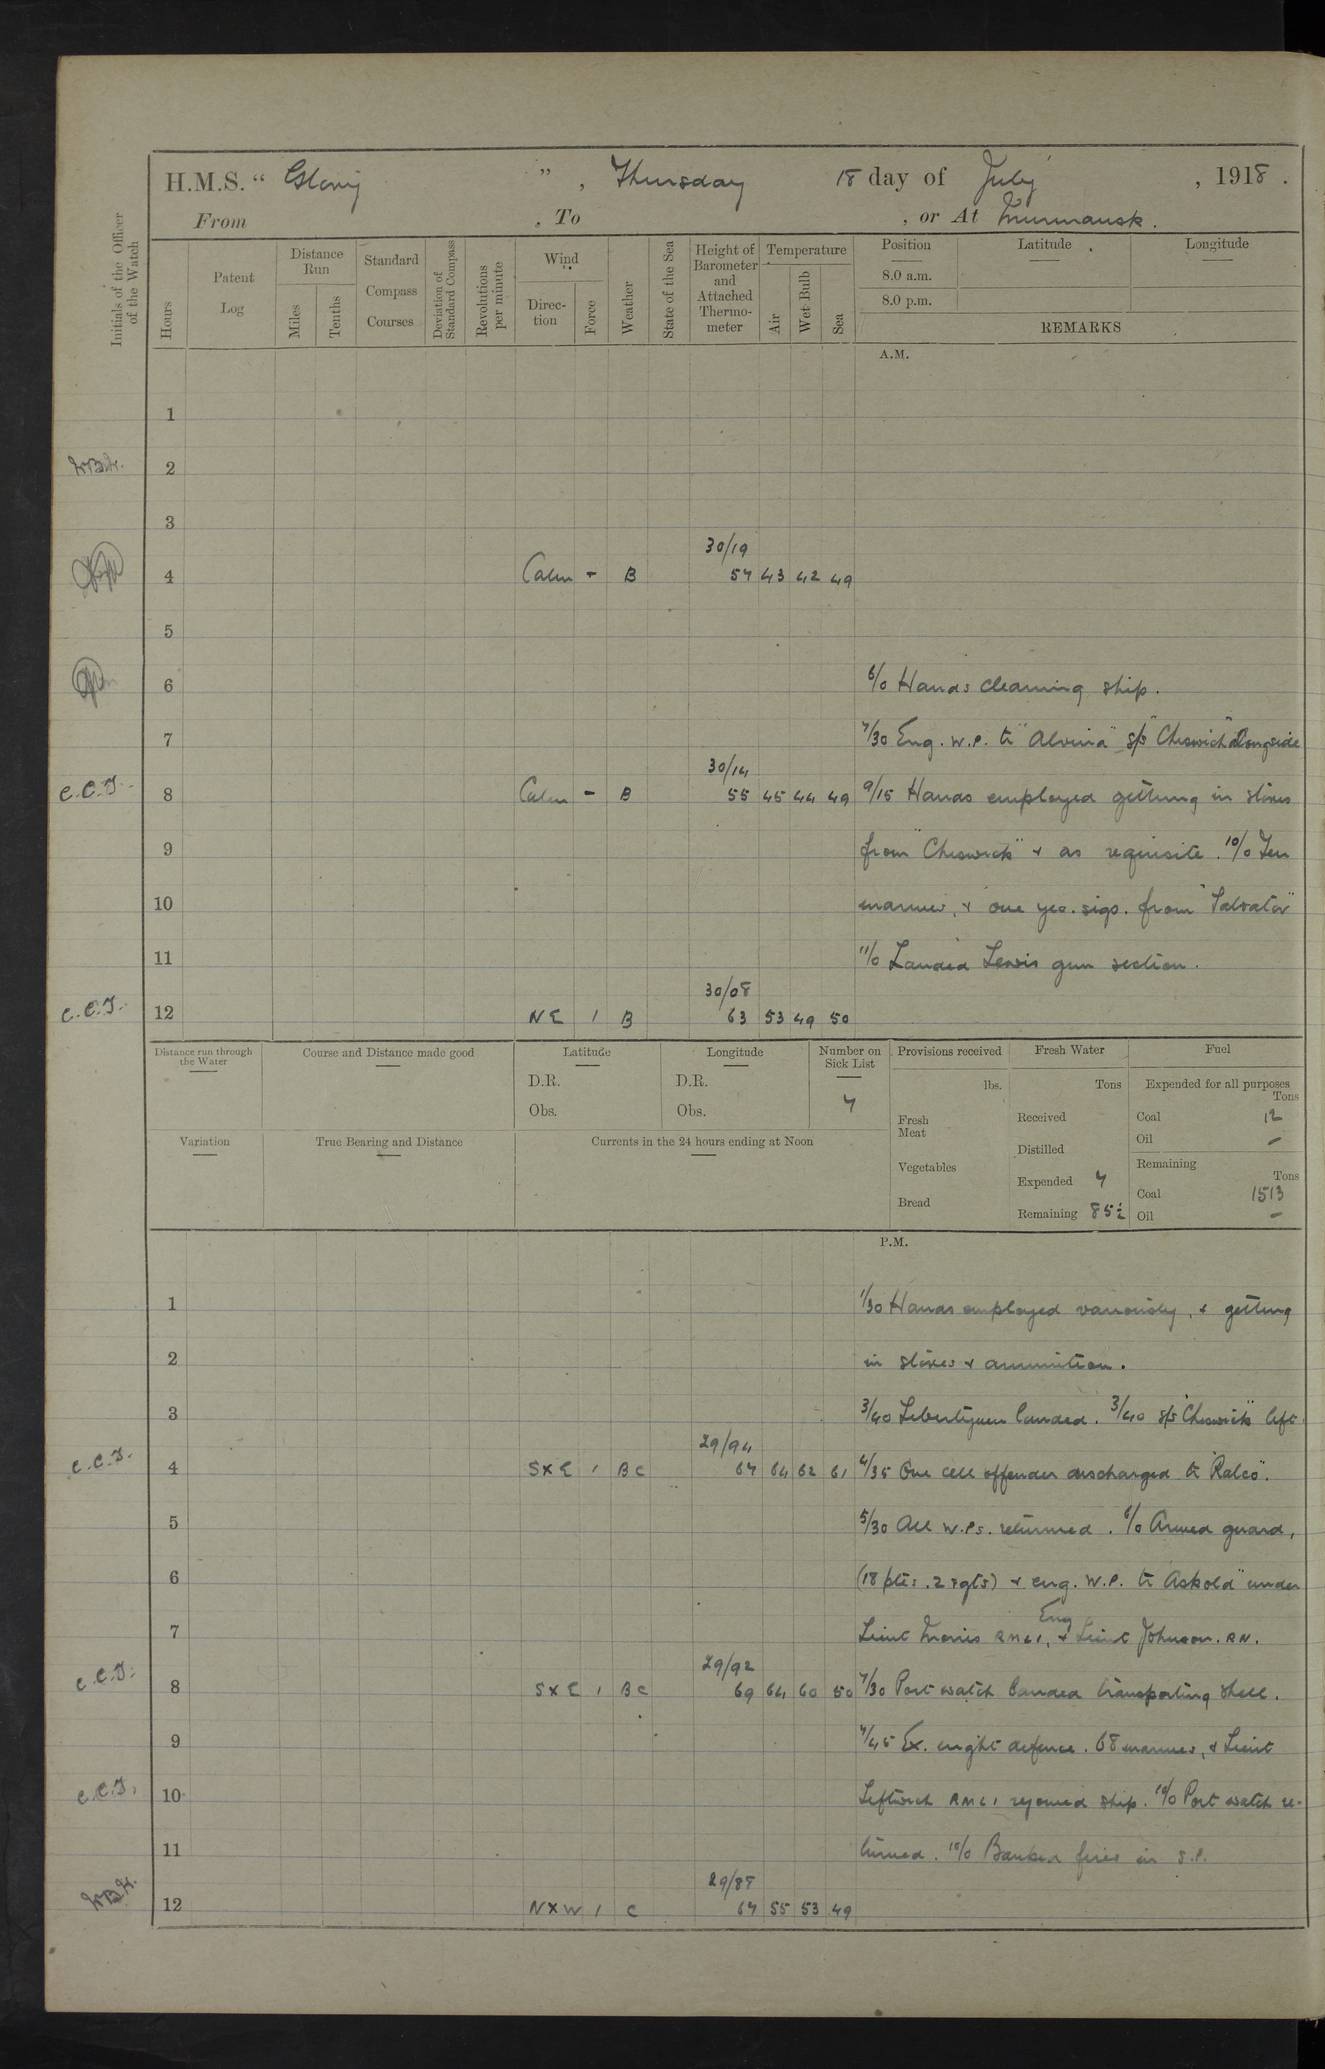 H.M.S. “ Glory ” , Thursday 18 day of July , 1918 .
From , To , or At Murmansk .
Initials of the Officer of the Watch
Hours
Patent Log
Distance Run
Miles
Tenths
Standard Compass Courses
Deviation of Standard Compass
Revolutions per minute
Wind
Direc-tion
Force
Weather
State of the Sea
Height of Barometer and Attached Thermo-meter
Temperature
Air
Wet Bulb
Sea
Position
8.0 a.m.
8.0 p.m.
Latitude
Longitude
REMARKS
A.M.
1
2
3
30/19
4 Calm - B 57 43 42 49
5
6 6/0 Hands cleaning ship.
7 7/30 Eng. W.P. to "Alvina" S/S "Cheswick" alongside
30/14
C.C.J. 8 Calm - B 55 45 44 49 9/15 Hands employed getting in stores
9 from "Cheswick" & as requisite. 10/0 Ten
10 marines, & one yeo. sigs. from "Salvator"
11 11/0 Landed Lewis gun section.
30/08
C.C.J. 12 NE 1 B 63 53 49 50
Distance run through the Water
Course and Distance made good
Latitude
D.R.
Obs.
Longitude
D.R.
Obs.
Number on Sick List
7
Provisions received
lbs.
Fresh Meat
Vegetables
Bread
Fresh Water
Tons
Received
Distilled
Expended 7
Remaining 85½
Fuel
Expended for all purposes
Tons
Coal 12
Oil –
Remaining
Tons
Coal 1513
Oil –
Variation
True Bearing and Distance
Currents in the 24 hours ending at Noon
P.M.
1 1/30 Hands employed variously, & getting
2 in stores & ammunition.
3 3/40 Libertymen landed. 3/40 S/S "Cheswick" left.
29/94
C.C.J. 4 SXE 1 BC 67 64 62 61 4/35 One cell offender discharged to "Ralco".
5 5/30 All W.Ps. returned. 6/0 Armed guard,
6 (18 ptes. 2 sgts) & eng. W.P. to "Askold" under
7 Lieut Morris RMLI, & Eng Lieut Johnson. RN.
29/92
C.C.J. 8 SXE 1 BC 69 64 60 50 7/30 Port watch landed transporting shell.
9 7/45 Ex. night defence. 68 marines, & Lieut
C.C.J. 10 Leftwich RMLI rejoined ship. 10/0 Port watch re-
11 turned. 10/0 Banked fires in S.P.
29/88
12 NXW 1 C 67 55 53 49